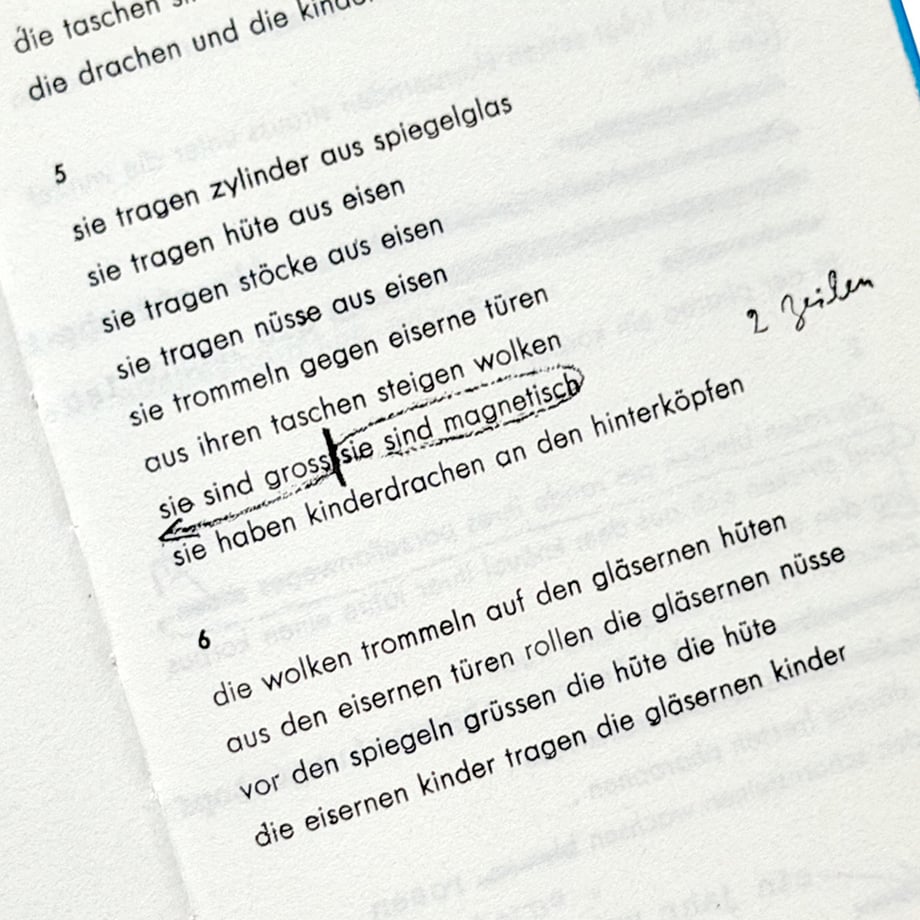 die taschen
die drachen und die
5
sie tragen zylinder aus spiegelglas
sie tragen hüte aus eisen
sie tragen stöcke aus eisen
sie tragen nüsse aus eisen
sie trommeln gegen eiserne türen
aus ihren taschen steigen wolken
sie sind gross sie sind magnetisch
2 Zeilen
sie haben kinderdrachen an den hinterköpfen
6
die wolken trommeln auf den gläsernen hüten
aus den eisernen türen rollen die gläsernen nüsse
vor den spiegeln grüssen die hüte die hüte
die eisernen kinder tragen die gläsernen kinder